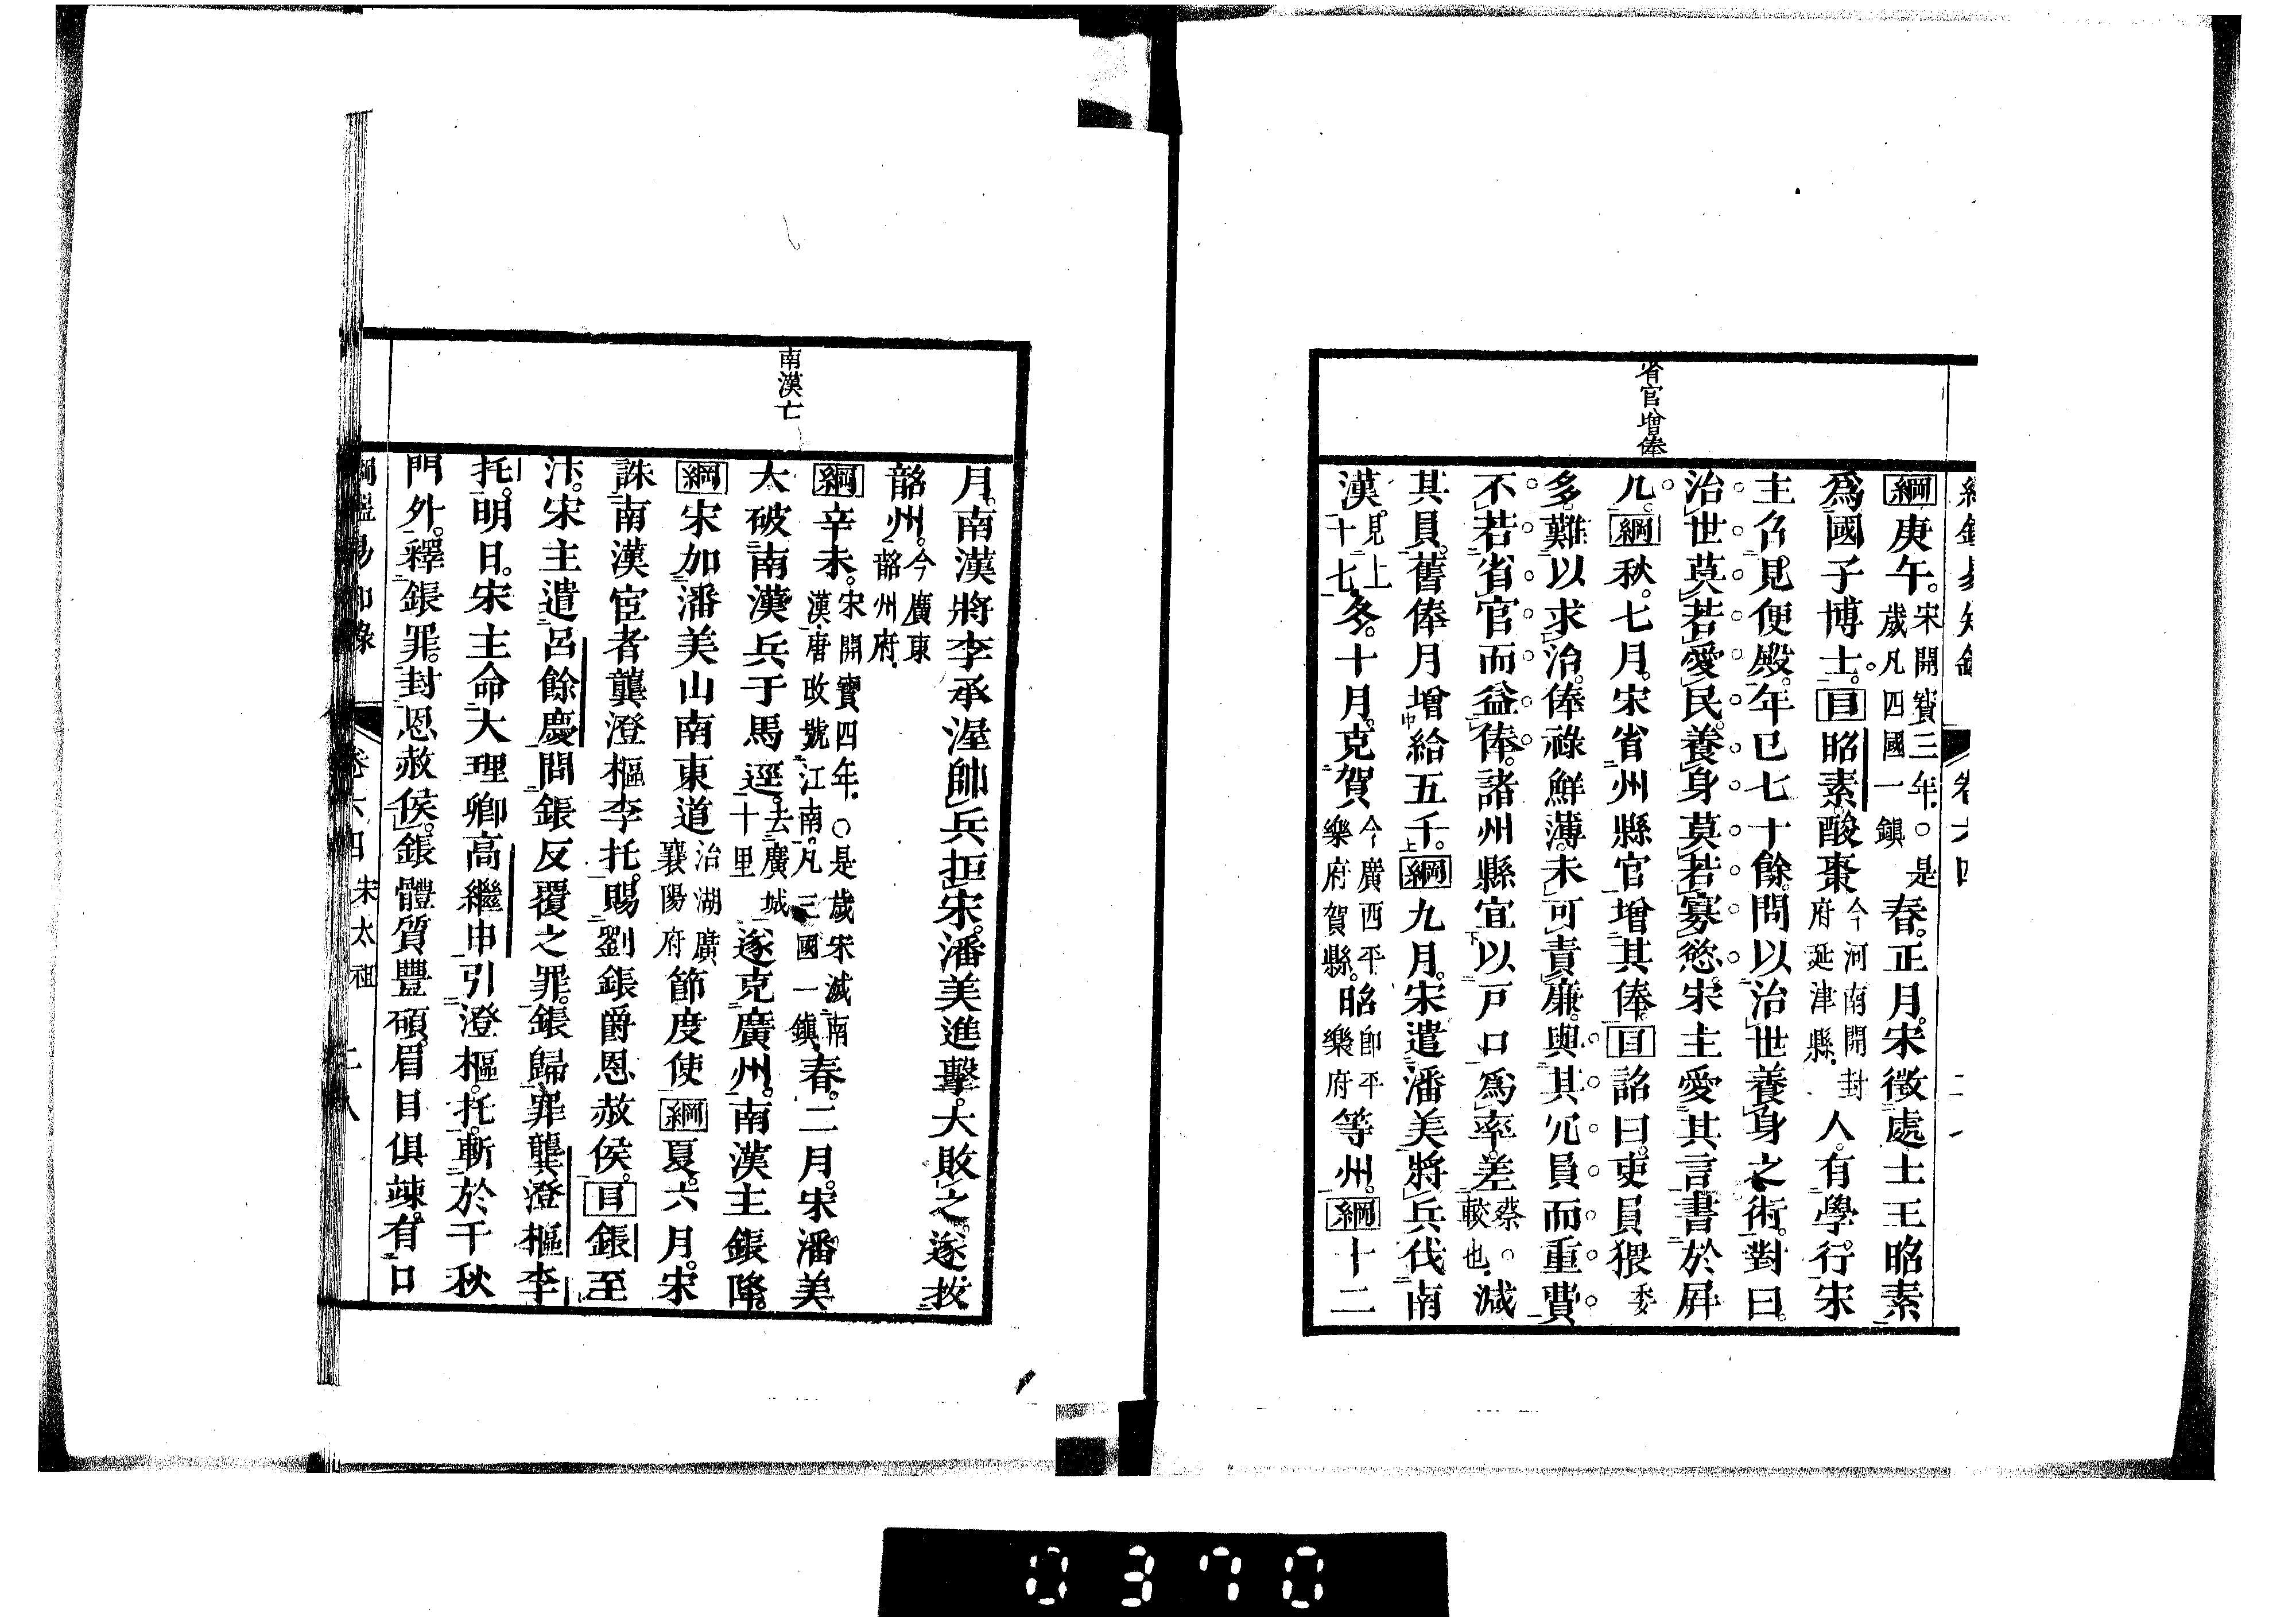 省官增俸
綱庚午。宋開寳三年。○是歲凡四國一鎮春。正月。宋徵處士王昭素
爲國子博士。目昭素。酸棗今河南開封府延津縣。人。有學行。宋
主召。見便殿。年已七十餘。問以治世養身之術。對曰。
治世莫若愛民。養身莫若寡慾。宋主愛其言書於屛
几。綱秋。七月。宋省州縣官增其俸。目詔曰。吏員猥委
多。難以求治。俸祿鮮薄。未可責廉。與其冗員而重費
不若省官而益俸。諸州縣宜以戸口爲率。差蔡○較也。減
其員。舊俸月增給五千。綱九月。宋遣潘美將兵伐南
漢。見上十七。冬。十月。克賀今廣西平樂府賀縣。昭卽平樂府等州。綱十二
南漢亡
月。南漢將李承渥帥兵拒宋。潘美進擊。大敗之。遂拔
韶州。今廣東韶州府。
綱辛未。宋開寳四年。○是歲宋滅南漢唐改號江南。凡三國一鎮春。二月。宋潘美
大破南漢兵于馬逕。去廣城十里遂克廣州。南漢主鋹降。
綱宋加潘美山南東道治湖廣襄陽府節度使綱夏。六月。宋
誅南漢宦者龔澄樞李托。賜劉鋹爵恩赦侯。目鋹至
汴。宋主遣呂餘慶問鋹反覆之罪。鋹歸罪龔澄樞李
托。明日。宋主命大理卿高繼申引澄樞。托。斬於千秋
門外。釋鋹罪。封恩赦侯。鋹體質豐碩。眉目俱竦。有口
綱鑑易知錄 卷六四 宋太祖 二八
0370